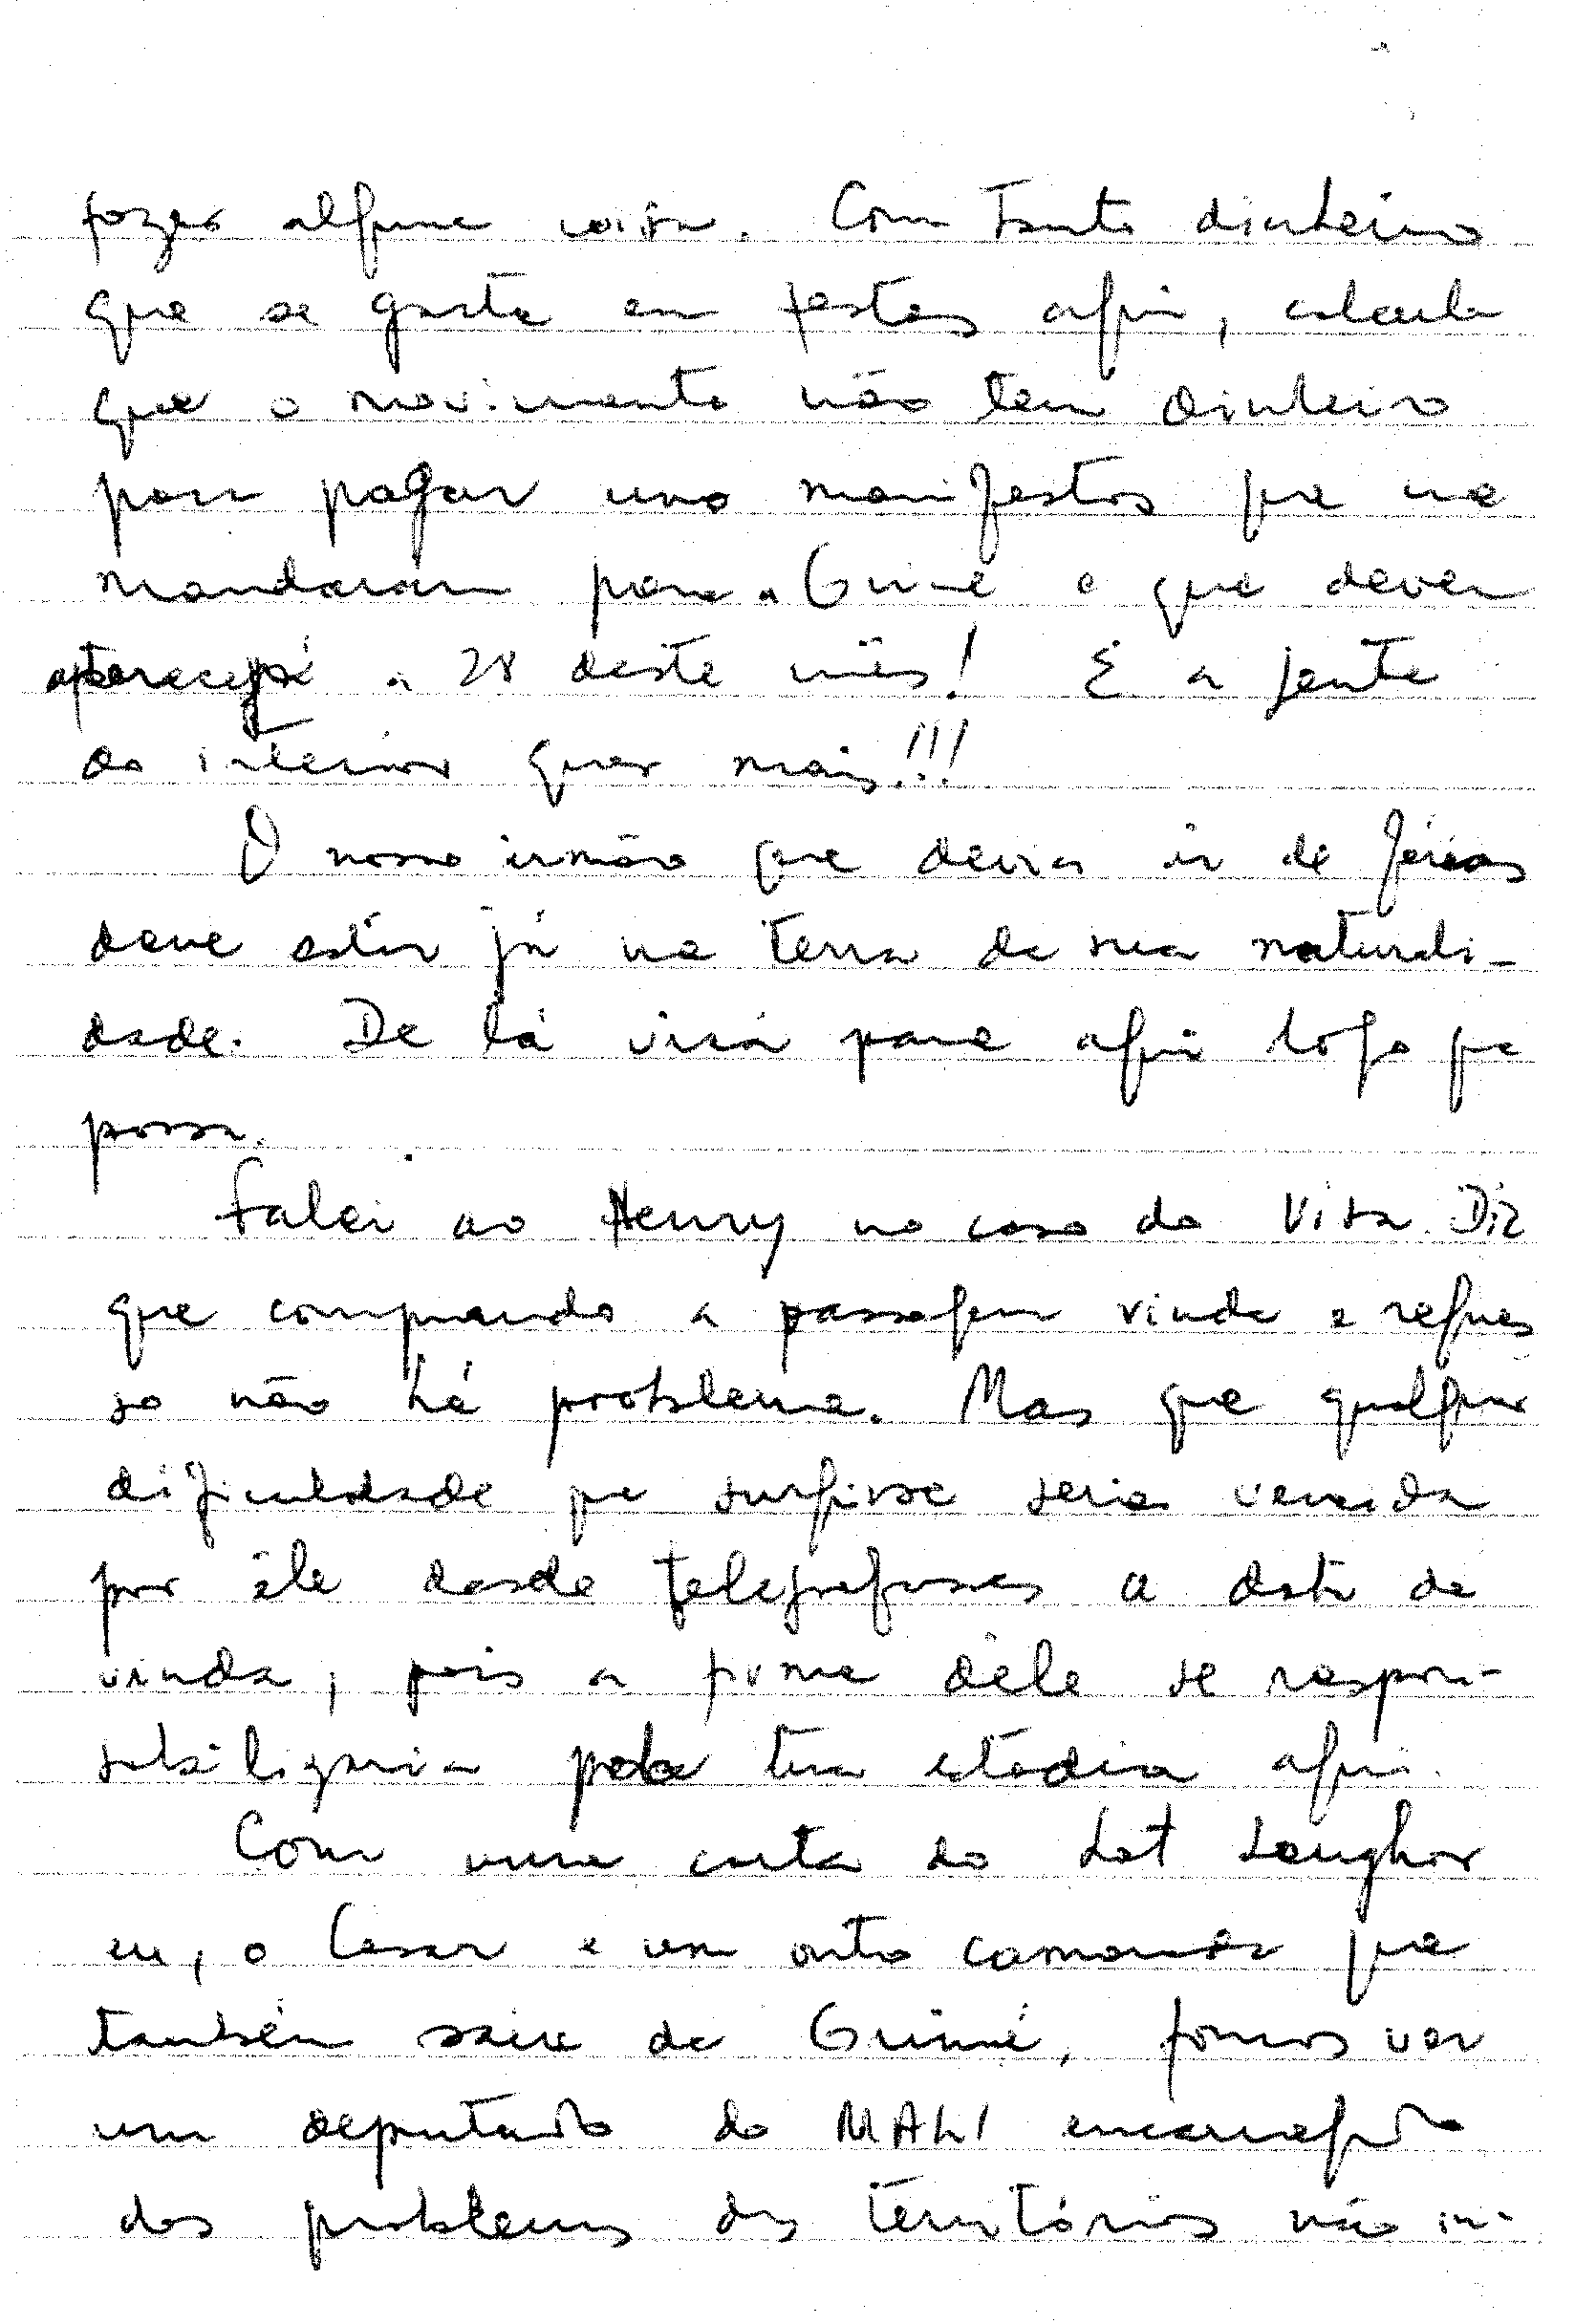 fazer alguma coisa. Com tanto dinheiro
que se gasta em festas aqui, calcula
que o movimento não tem dinheiro
para pagar uns manifestos que se
mandaram para a Guiné e que devem
aparecer a 28 deste mês! E a gente
do interior quer mais!!!
O nosso irmão que devia ir de férias
deve estar já na terra da sua naturali-
dade. De lá virá para aqui logo que
possa.
Falei ao Henry no caso do Visa. Diz
que comprando a passagem vinda e regres
so não há problema. Mas que qualquer
dificuldade que surgisse seria vencida
por êle desde que telegrafasses a data da
vinda, pois a firma dêle se respon-
sabilizaria pela tua estadia aqui.
Com uma carta do Lat Senghor
eu, o Cesar e um outro camarada que
também saiu da Guiné, fomos ver
um deputado do MALI encarregado
dos problemas dos territórios não in-